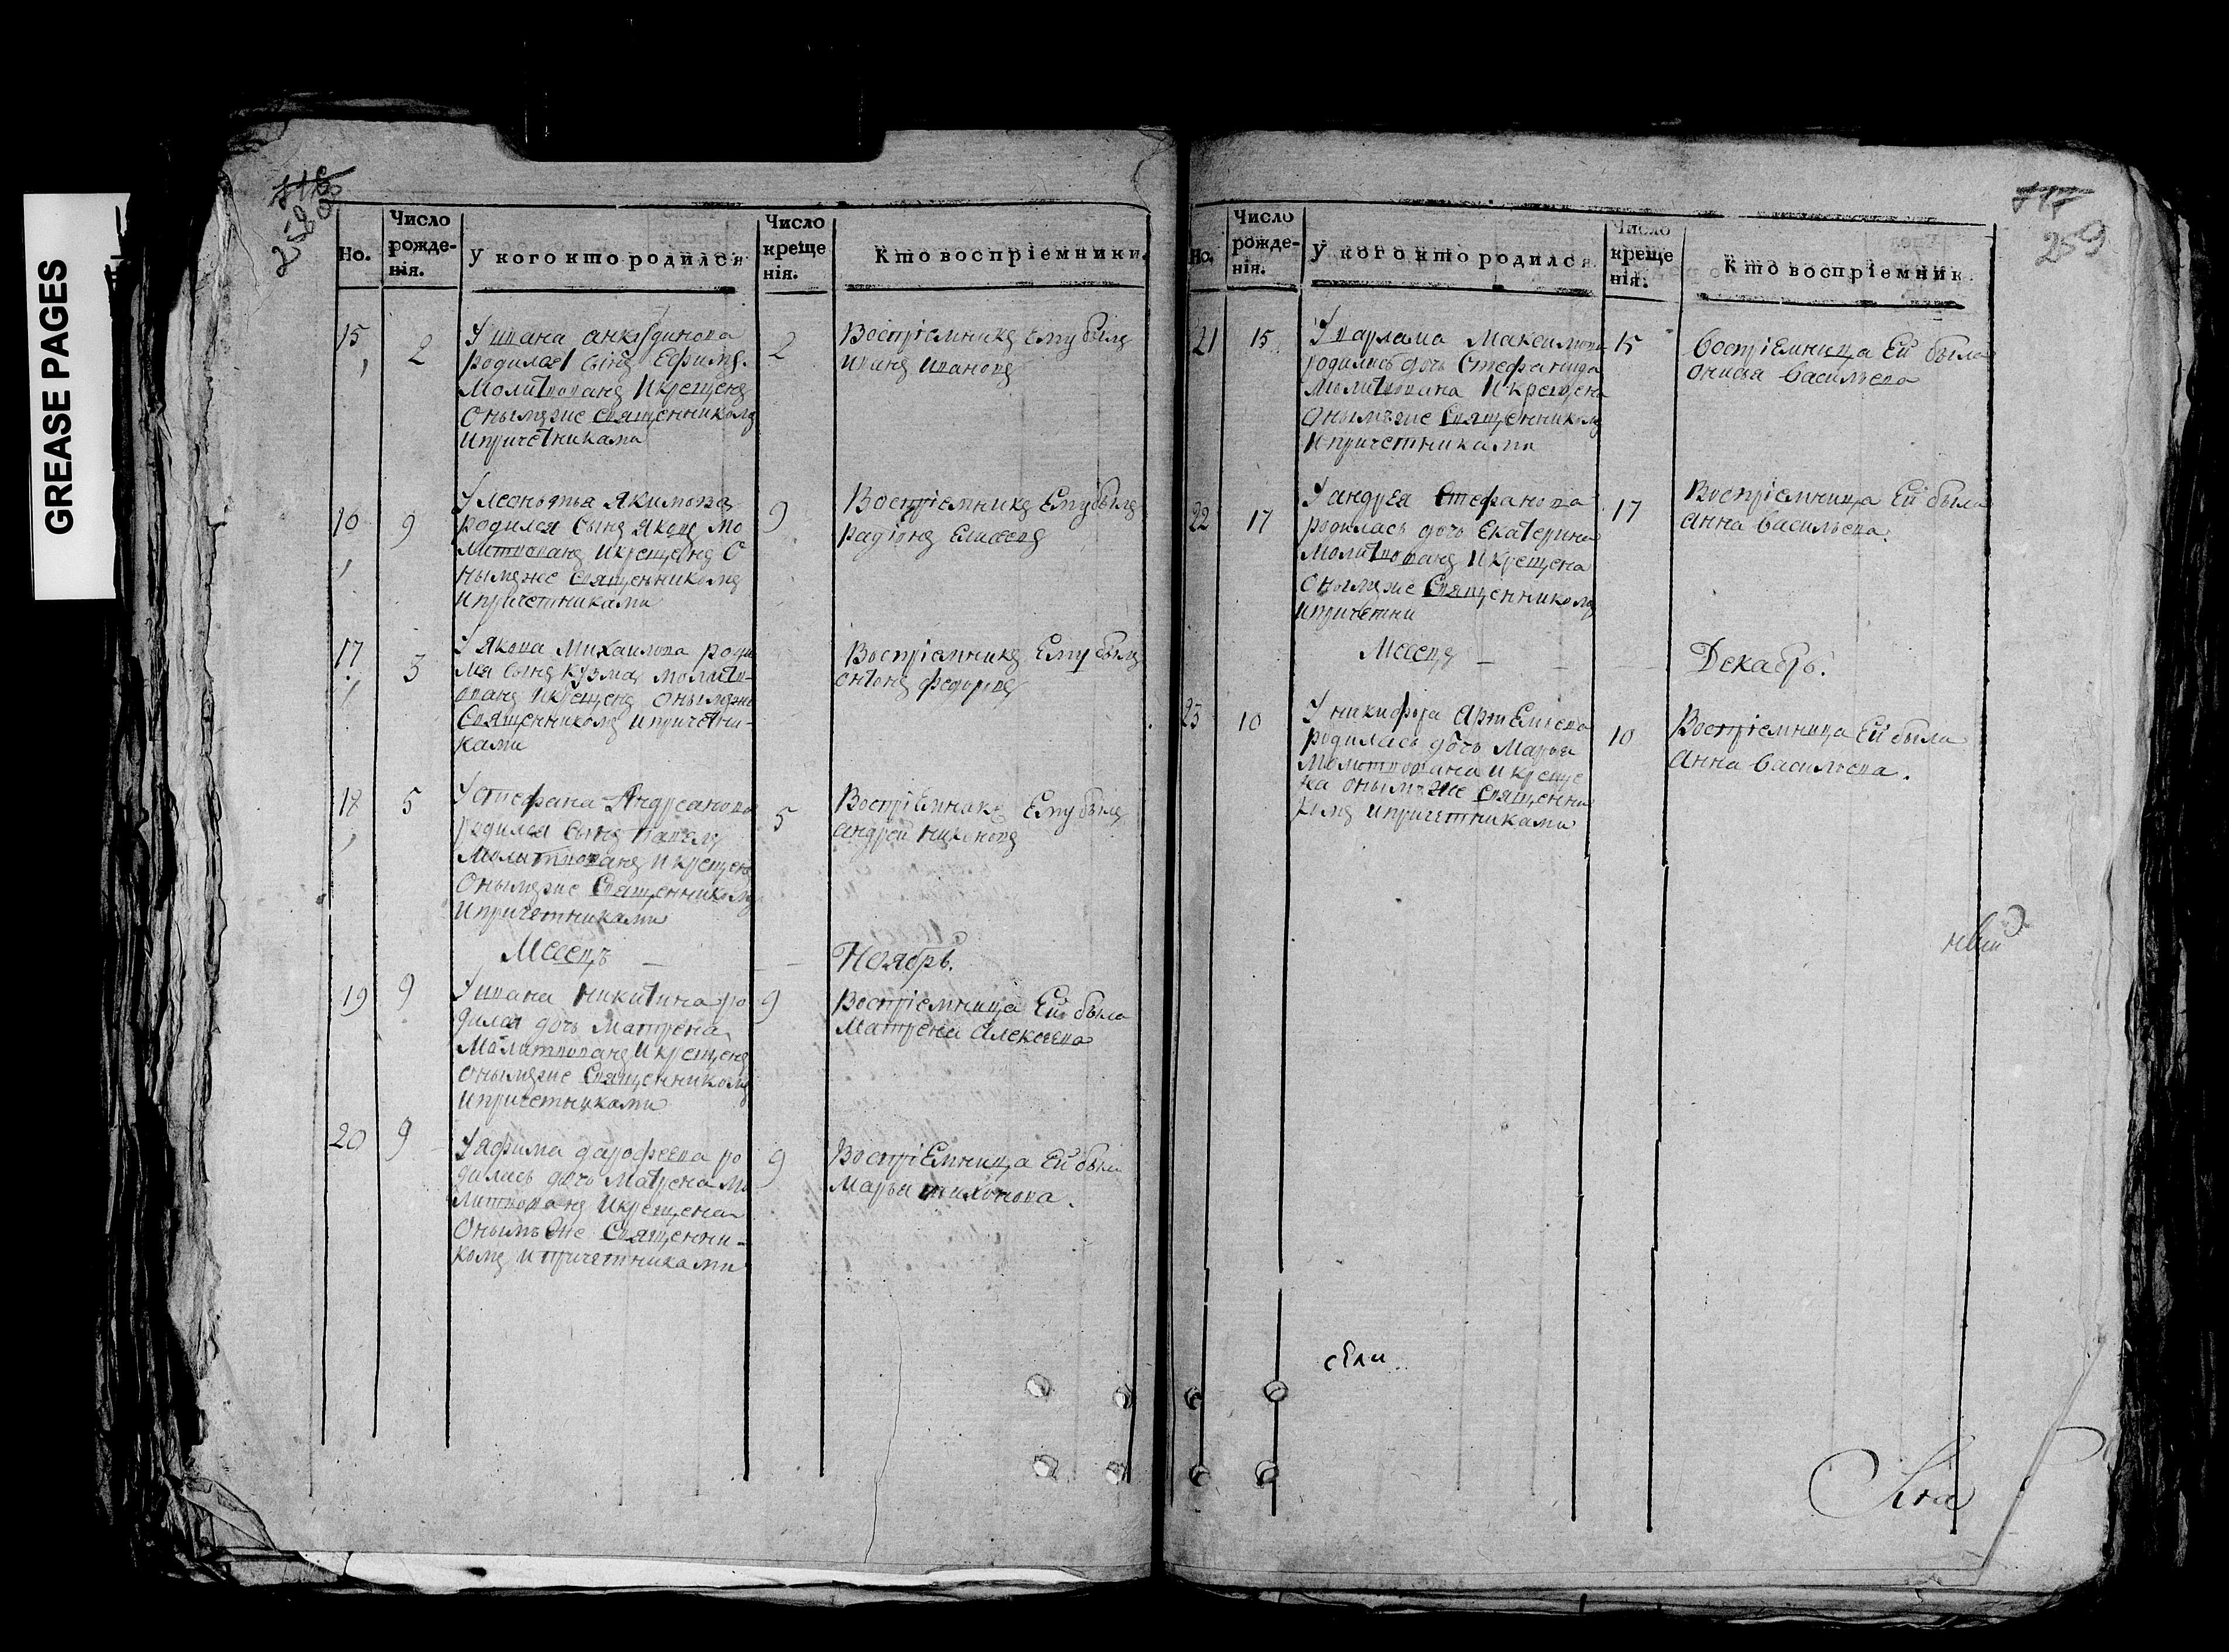 GREASE PAGES
258
Но.
Число рожде-нія.
У кого кто родился
Число креще нія.
Кто воспріемники.
15
2
У ивана анкудинова
родился сынъ Ефимъ.
Молитвованъ И крещенъ
Онымъже священникомъ
и причетниками
2
Воспріемникъ Ему былъ
иванъ ивановъ
16
9
У леонтья Якимова
родился сынъ Яковъ мо
литвованъ И крещенъ О
нымъже священникомъ
и причетниками
9
Воспріемникъ Ему былъ
радіонъ Елисеевъ
17
3
У Якова Михаилова роди
лся сынъ кузма молитв-
ованъ И крещенъ Онымъже
Священникомъ и причетни-
ками
Воспріемникъ Ему былъ
антонъ федоровъ
18
5
У стефана Андреанова
родился сынъ павелъ
Молитвованъ И крещенъ
Онымъже Священникомъ
и причетниками
5
Воспріемникъ Ему былъ
андрей никоновъ
Месецъ — — Ноябрь.
19
9
У ивана никитина ро
дилса дочь матрена
Молитвованъ И крещенъ
онымъже Священникомъ
и причетниками
9
Воспріемница Ей была
Матрена алексеева
20
9
У афима дарофеева ро
дилась дочь матрена мо
литвованъ И крещена
Онымъ же Священни-
комъ и причетниками
9
Воспріемница Ей была
Марья тихонова.
259
Но.
Число рожде-нія.
У кого кто родился
Число креще нія.
Кто воспріемник.
21
15
У варлама Максимова
родилась дочь Стефанида
Молитвована И крещена
Онымъже Священникомъ
И причетниками
15
воспріемница Ей была
васильева
22
17
У андрея Стефанова
родилась дочь Екатерина
Молитвованъ И крещена
Онымъже Священникомъ
и причетни
17
Воспріемница Ей была
анна васильева.
Месецъ — — — Декабрь.
23
10
У никифора Артемьева
родилась дочь Марья
Молитвована и креще
на онымъ же Священни
комъ и причетниками
10
Воспріемница Ей была
Анна васильева.